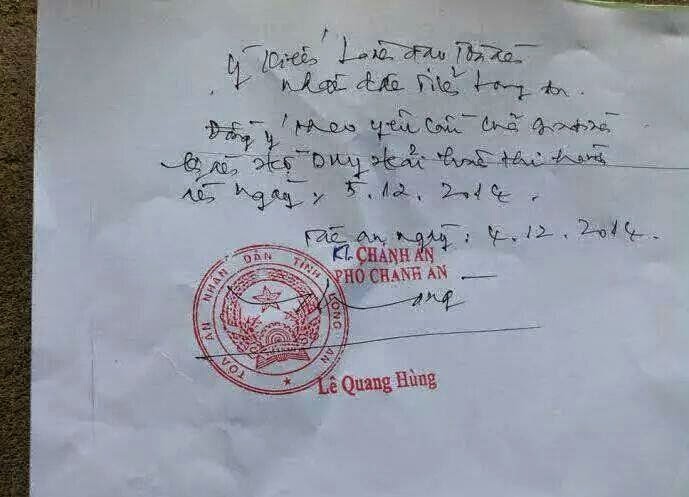 Ý kiến Lãnh đạo Tòa án
nhân dân tỉnh Long An.
Đồng ý theo yêu cầu của
Duy Hải thi hành
ngày 5.12.2014.
án ngày: 4.12.2014.
KT. CHÁNH ÁN
PHÓ CHÁNH ÁN
TÒA ÁN NHÂN DÂN TỈNH LONG AN
Lê Quang Hùng